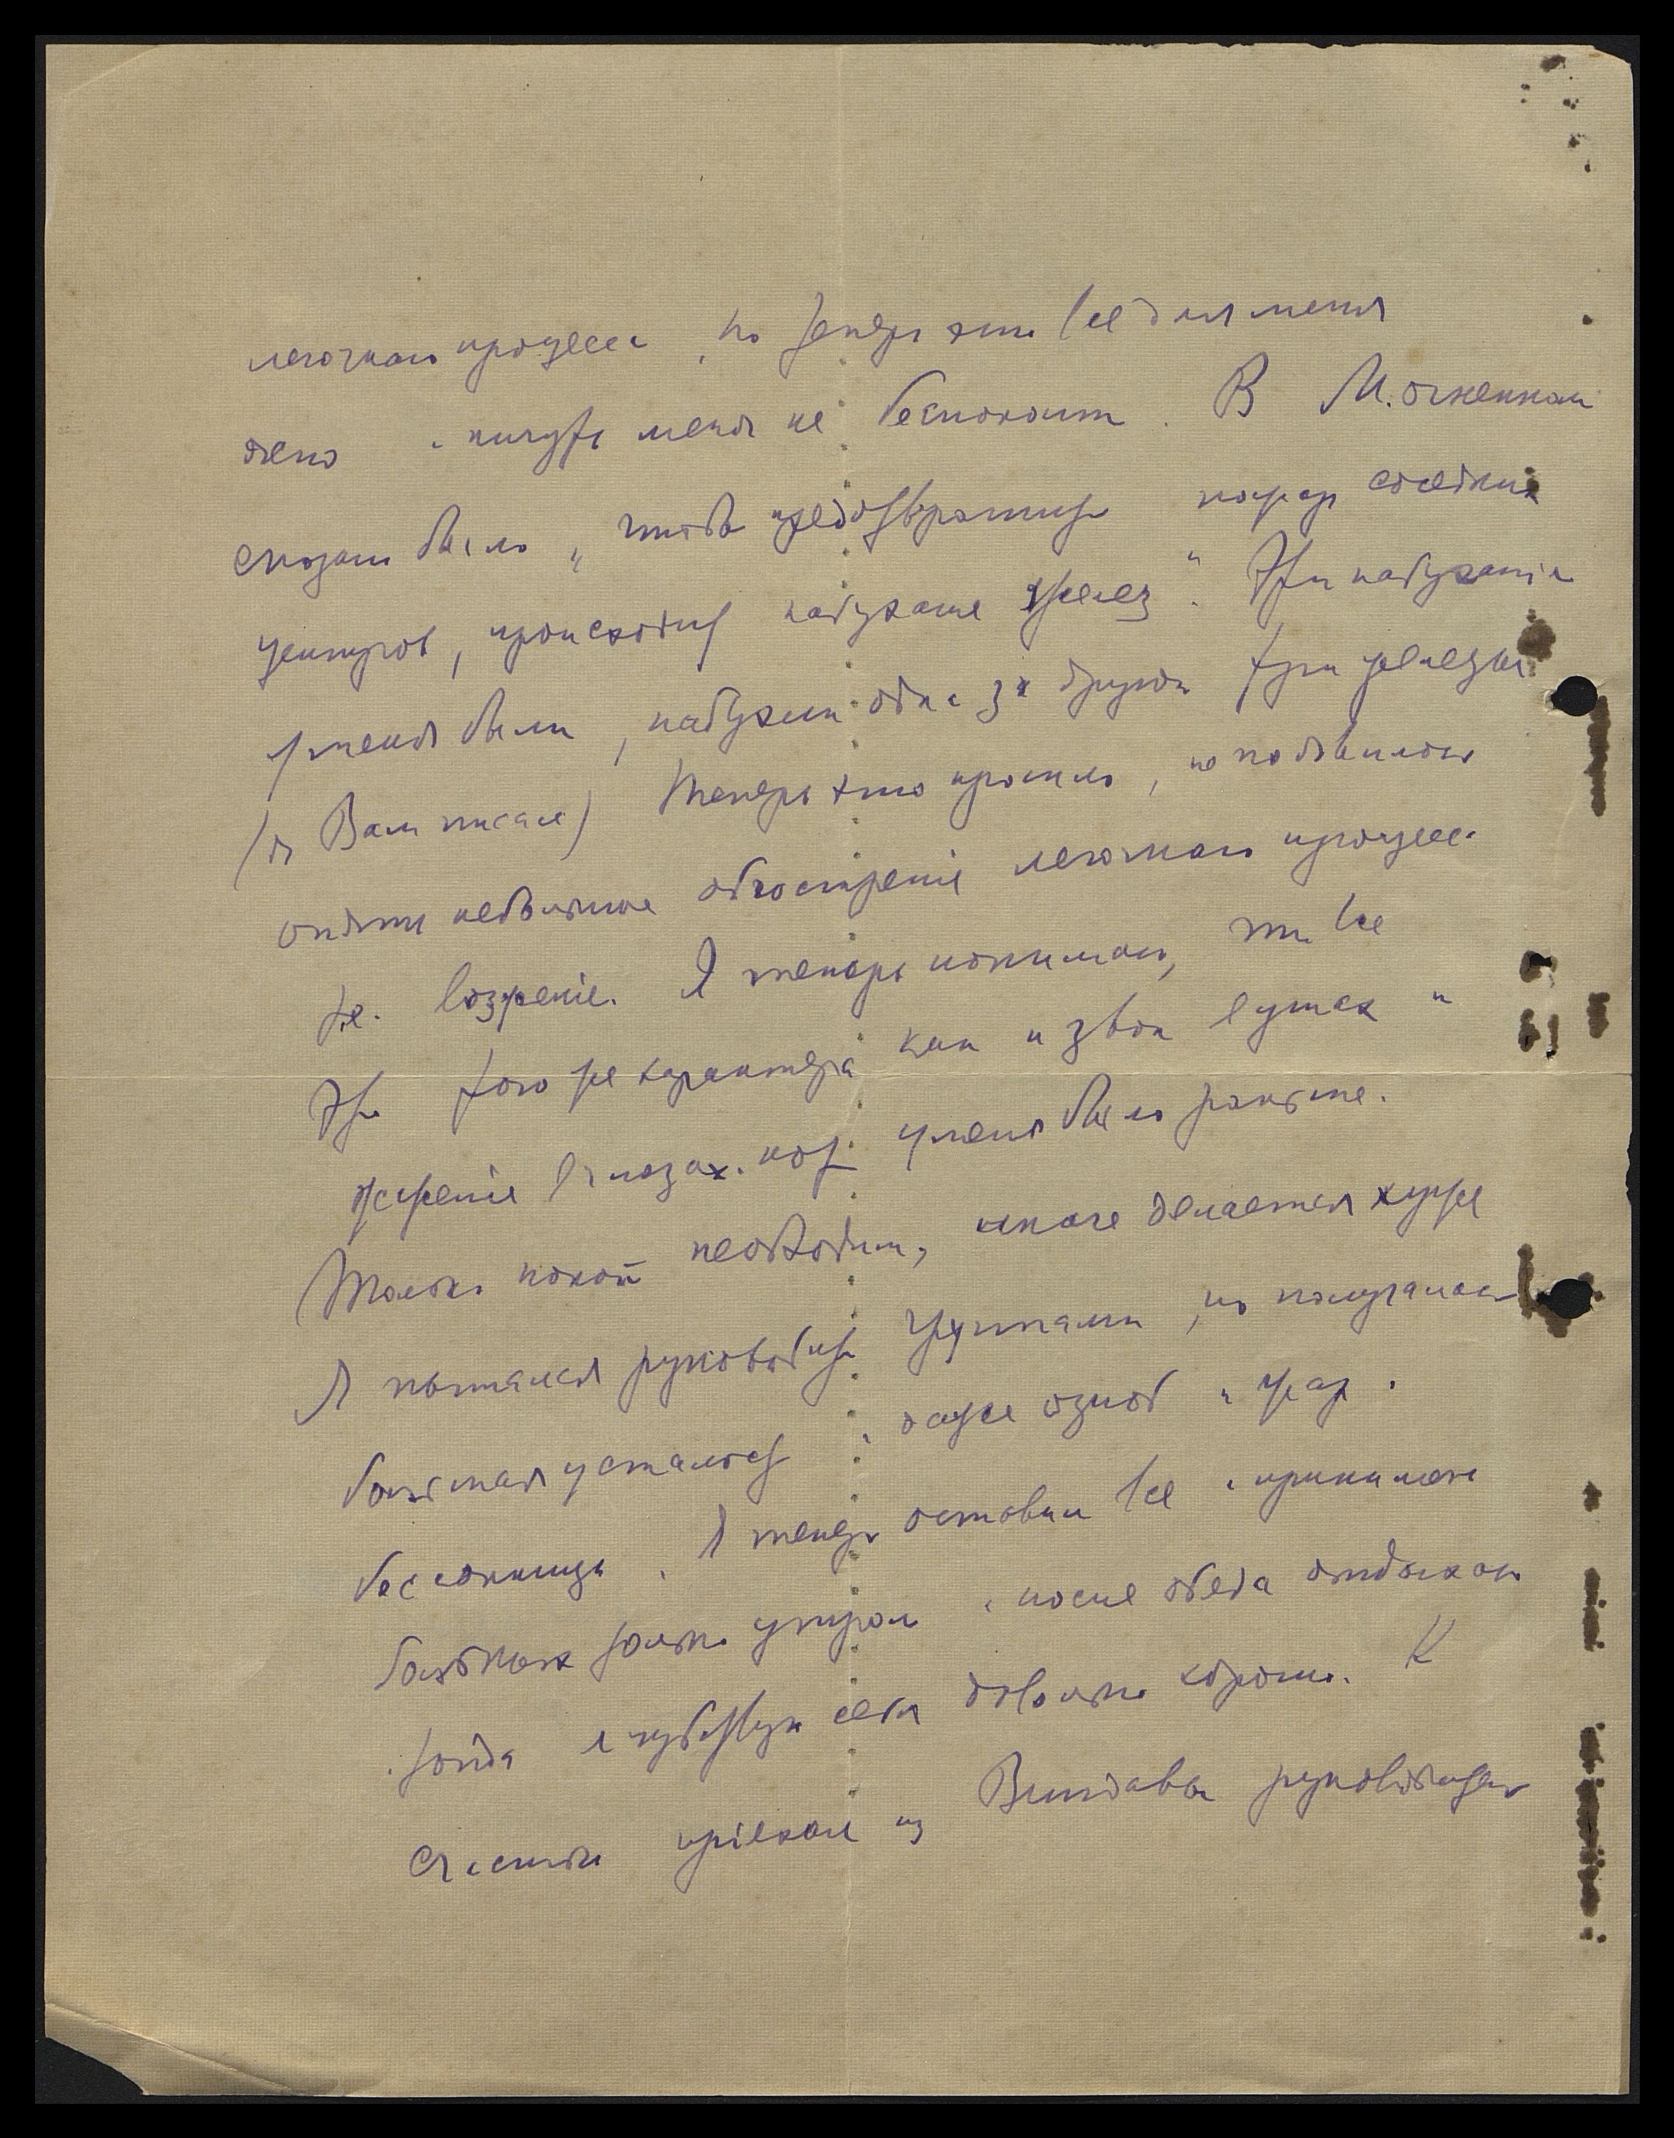 легочнаго процесса, но теперь это все для меня
ясно и ничуть меня не беспокоит. В М. огненном
сказано было „чтобы предотвратить пожар соседних
центров, происходит набухание желез". Эти набухания
у меня были, набухали одна за другой три железы
(я Вам писал) Теперь это прошло, но появилось
опять небольшое обострение легочнаго процесса
т.е. возгрение. Я теперь понимаю, что все
это того же характера как и звон в ушах и
жжение в глазах. кот. у меня было раньше.
Только покой необходим, иначе делается хуже
Я пытался руководить группами, но получалась
большая усталость и даже озноб и жар.
бессонница. Я теперь оставил все и принимаю
больных только утром и после обеда отдыхаю
тогда я чувствую себя довольно хорошо. К
счастью приехал из Виндавы руководитель